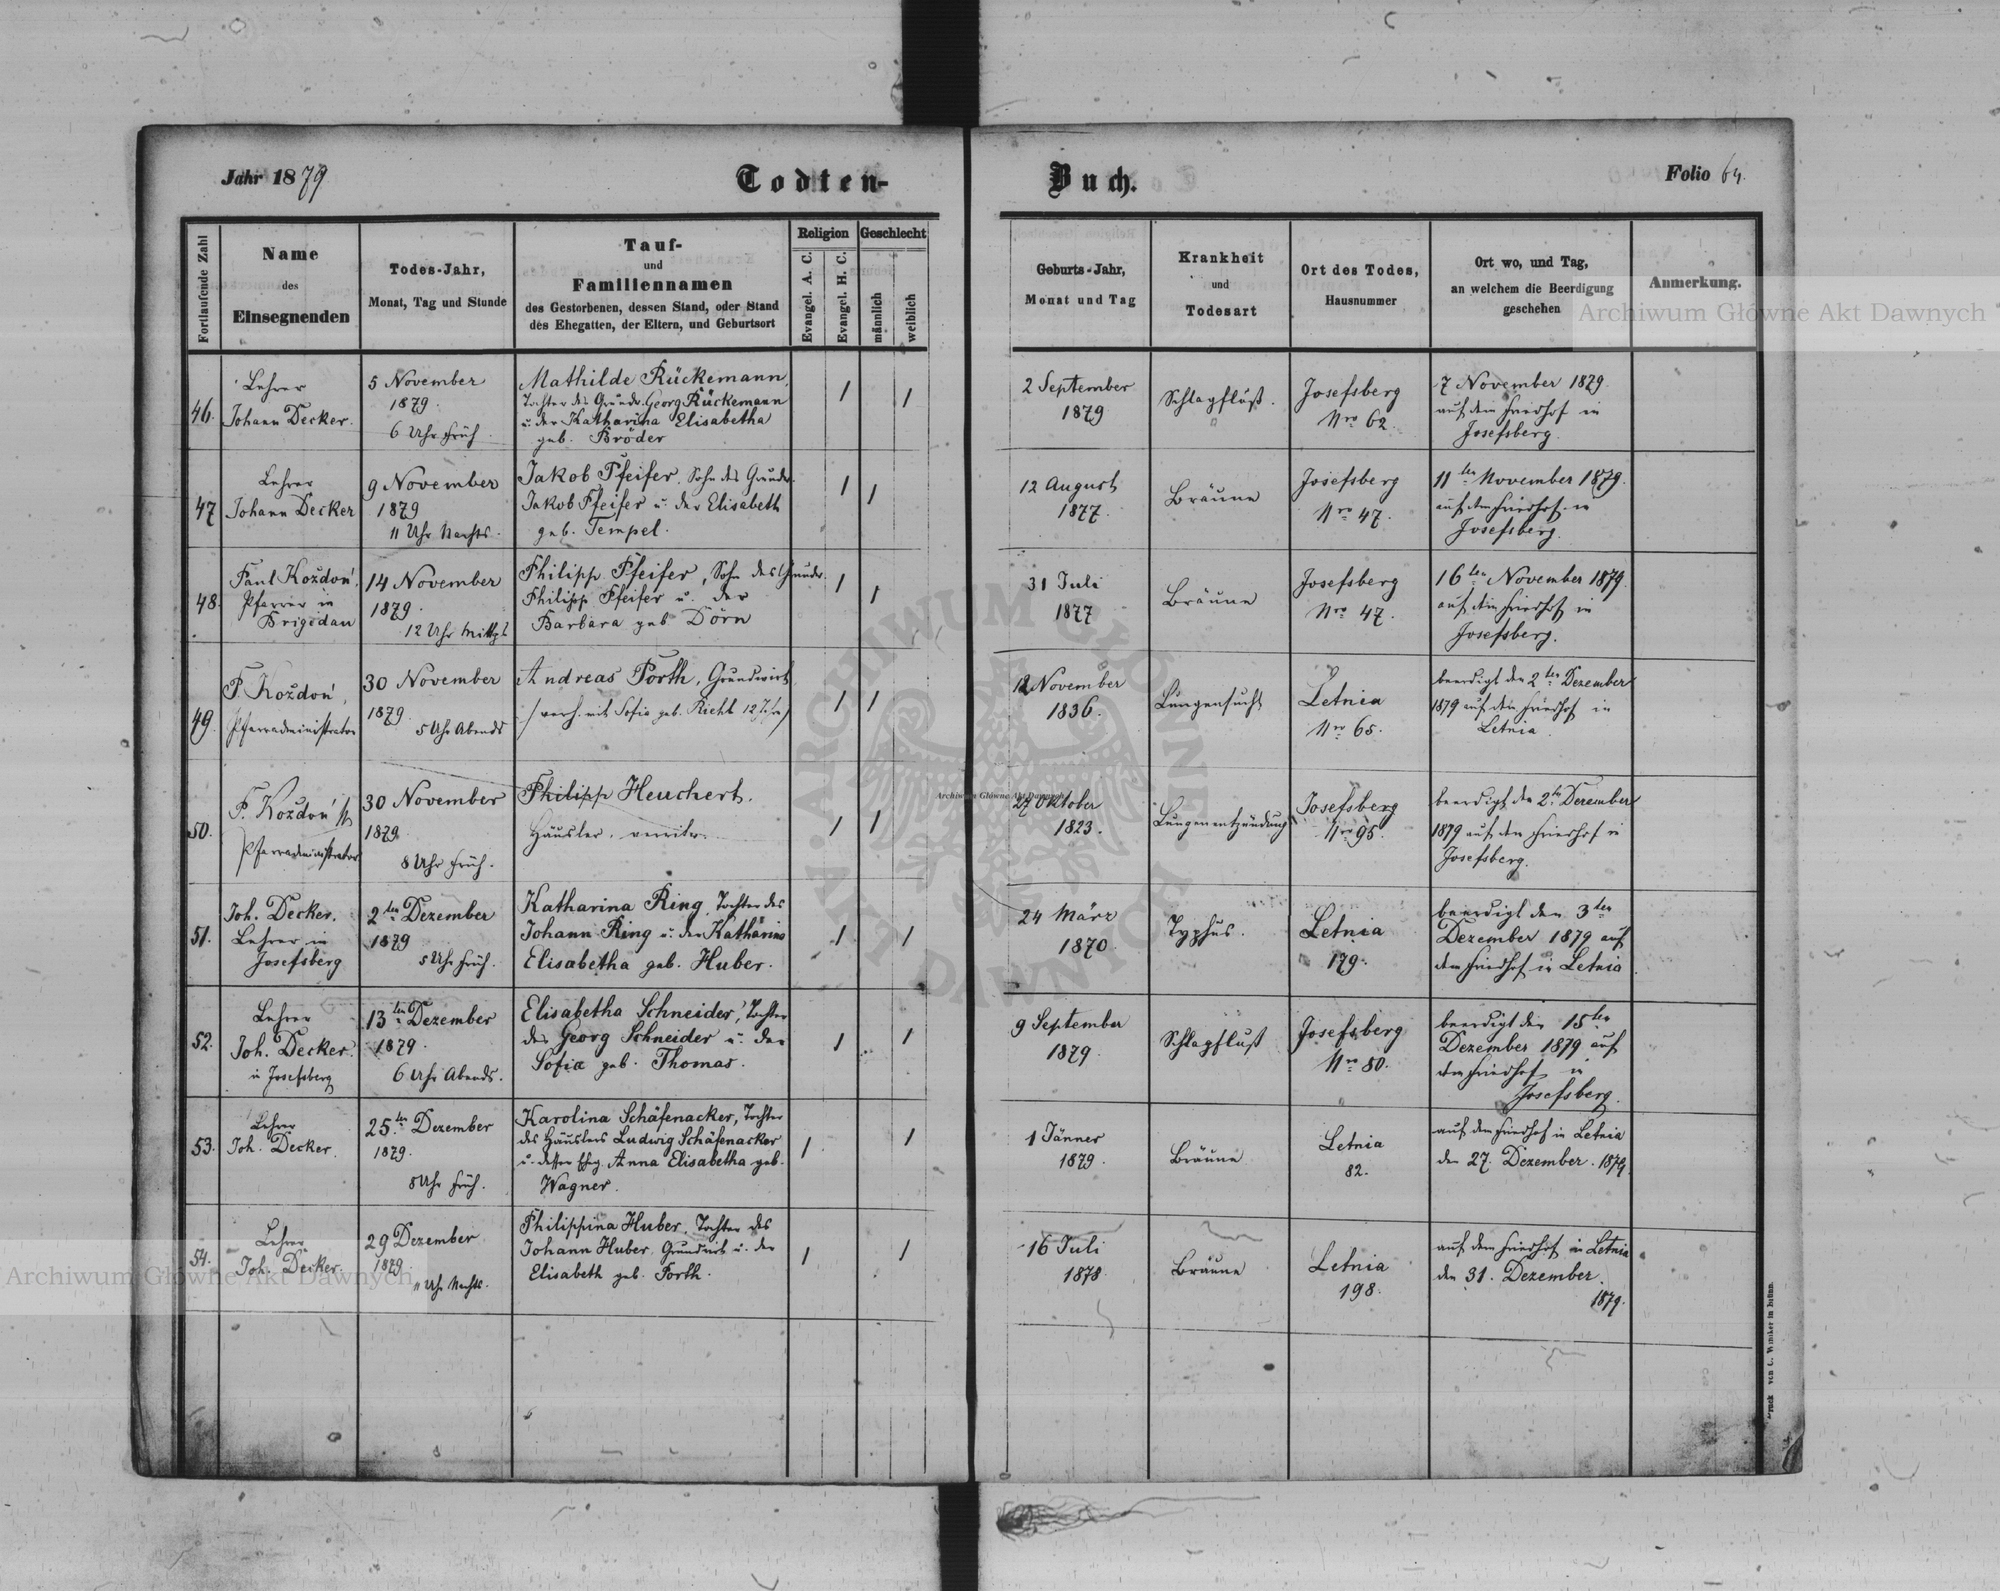 Jahr 1879
Todten-
Buch.
Folio 64.
Fortlaufende Zahl
Name
des
Einsegnenden
Todes-Jahr,
Monat, Tag und Stunde
Tauf-
und
Familiennamen
des Gestorbenen, dessen Stand, oder Stand
des Ehegatten, der Eltern, und Geburtsort
Religion
Evangel. A. C.
Evangel. H. C.
Geschlecht
männlich
weiblich
Geburts-Jahr,
Monat und Tag
Krankheit
und
Todesart
Ort des Todes,
Hausnummer
Ort wo, und Tag,
an welchem die Beerdigung
geschehen
Anmerkung.
46.
Lehrer
Johann Decker.
5 November
1879.
6 Uhr Früh.
Mathilde Rückemann,
Tochter des Grundw. Georg Rückemann
u. der Katharina Elisabetha
geb. Bröder
/
/
2 September
1879
Schlagfluß.
Josefsberg
Nro 62.
7 November 1879.
auf dem Friedhof in
Josefsberg.
47
Lehrer
Johann Decker
9 November
1879
11 Uhr Nachts.
Jakob Pfeifer, Sohn des Grundw.
Jakob Pfeifer u. der Elisabeth
geb. Tempel.
/
/
12 August
1877.
Bräune
Josefsberg
Nro 47.
11ten November 1879.
auf dem Friedhof in
Josefsberg.
48.
Paul Koždoń,
Pfarrer in
Brigidau
14 November
1879.
12 Uhr Mittgs
Philipp Pfeifer, Sohn des Grundw.
Philipp Pfeifer u. der
Barbara geb. Dörn
/
/
31 Juli
1877
Bräune
Josefsberg
Nro 47.
16ten November 1879.
auf dem Friedhof in
Josefsberg.
49.
P. Koždoń,
Pfarradministrator
30 November
1879.
5 Uhr Abends
Andreas Porth, Grundwirt
/ verh. mit Sofia geb. Richt 12 Jahre/
/
/
12 November
1836.
Lungensucht
Letnia
Nro 65.
beerdigt den 2ten Dezember
1879 auf dem Friedhof in
Letnia.
50.
P. Koždoń
Pfarradministrator
30 November
1879
8 Uhr Früh.
Philipp Heuchert.
Häusler.
/
/
27 Oktober
1823.
Lungenentzündung
Josefsberg
Nro 95.
beerdigt den 2ten Dezember
1879 auf dem Friedhof in
Josefsberg.
51.
Joh. Decker.
Lehrer in
Josefsberg
2ten Dezember
1879
5 Uhr Früh.
Katharina Ring, Tochter des
Johann Ring u. der Katharina
Elisabetha geb. Huber.
/
/
24 März
1870.
Typhus.
Letnia
179.
beerdigt den 3ten
Dezember 1879 auf
dem Friedhof in Letnia
52.
Lehrer
Joh. Decker.
in Josefsberg
13ten Dezember
1879.
6 Uhr Abends.
Elisabetha Schneider, Tochter
des Georg Schneider u. der
Sofia geb. Thomas.
/
/
9 September
1879.
Schlagfluß
Josefsberg
Nro 80.
beerdigt den 15ten
Dezember 1879 auf
dem Friedhof in
Josefsberg.
53.
Lehrer
Joh. Decker.
25ten Dezember
1879.
8 Uhr Früh.
Karolina Schäfenacker, Tochter
des Häuslers Ludwig Schäfenacker
u. dessen Eheg. Anna Elisabetha geb.
Wagner.
/
/
1 Jänner
1879.
Bräune
Letnia
82.
auf dem Friedhof in Letnia
den 27. Dezember. 1879.
54.
Lehrer
Joh. Decker.
29 Dezember
1879
11 Uhr Nachts.
Philippina Huber, Tochter des
Johann Huber, Grundwirt u. der
Elisabeth geb. Porth.
/
/
16 Juli
1878.
Bräune
Letnia
198.
auf dem Friedhof in Letnia
den 31. Dezember.
1879.
Archiwum Główne Akt Dawnych
Archiwum Główne Akt Dawnych
Archiwum Główne Akt Dawnych
ARCHIWUM GŁÓWNE AKT DAWNYCH